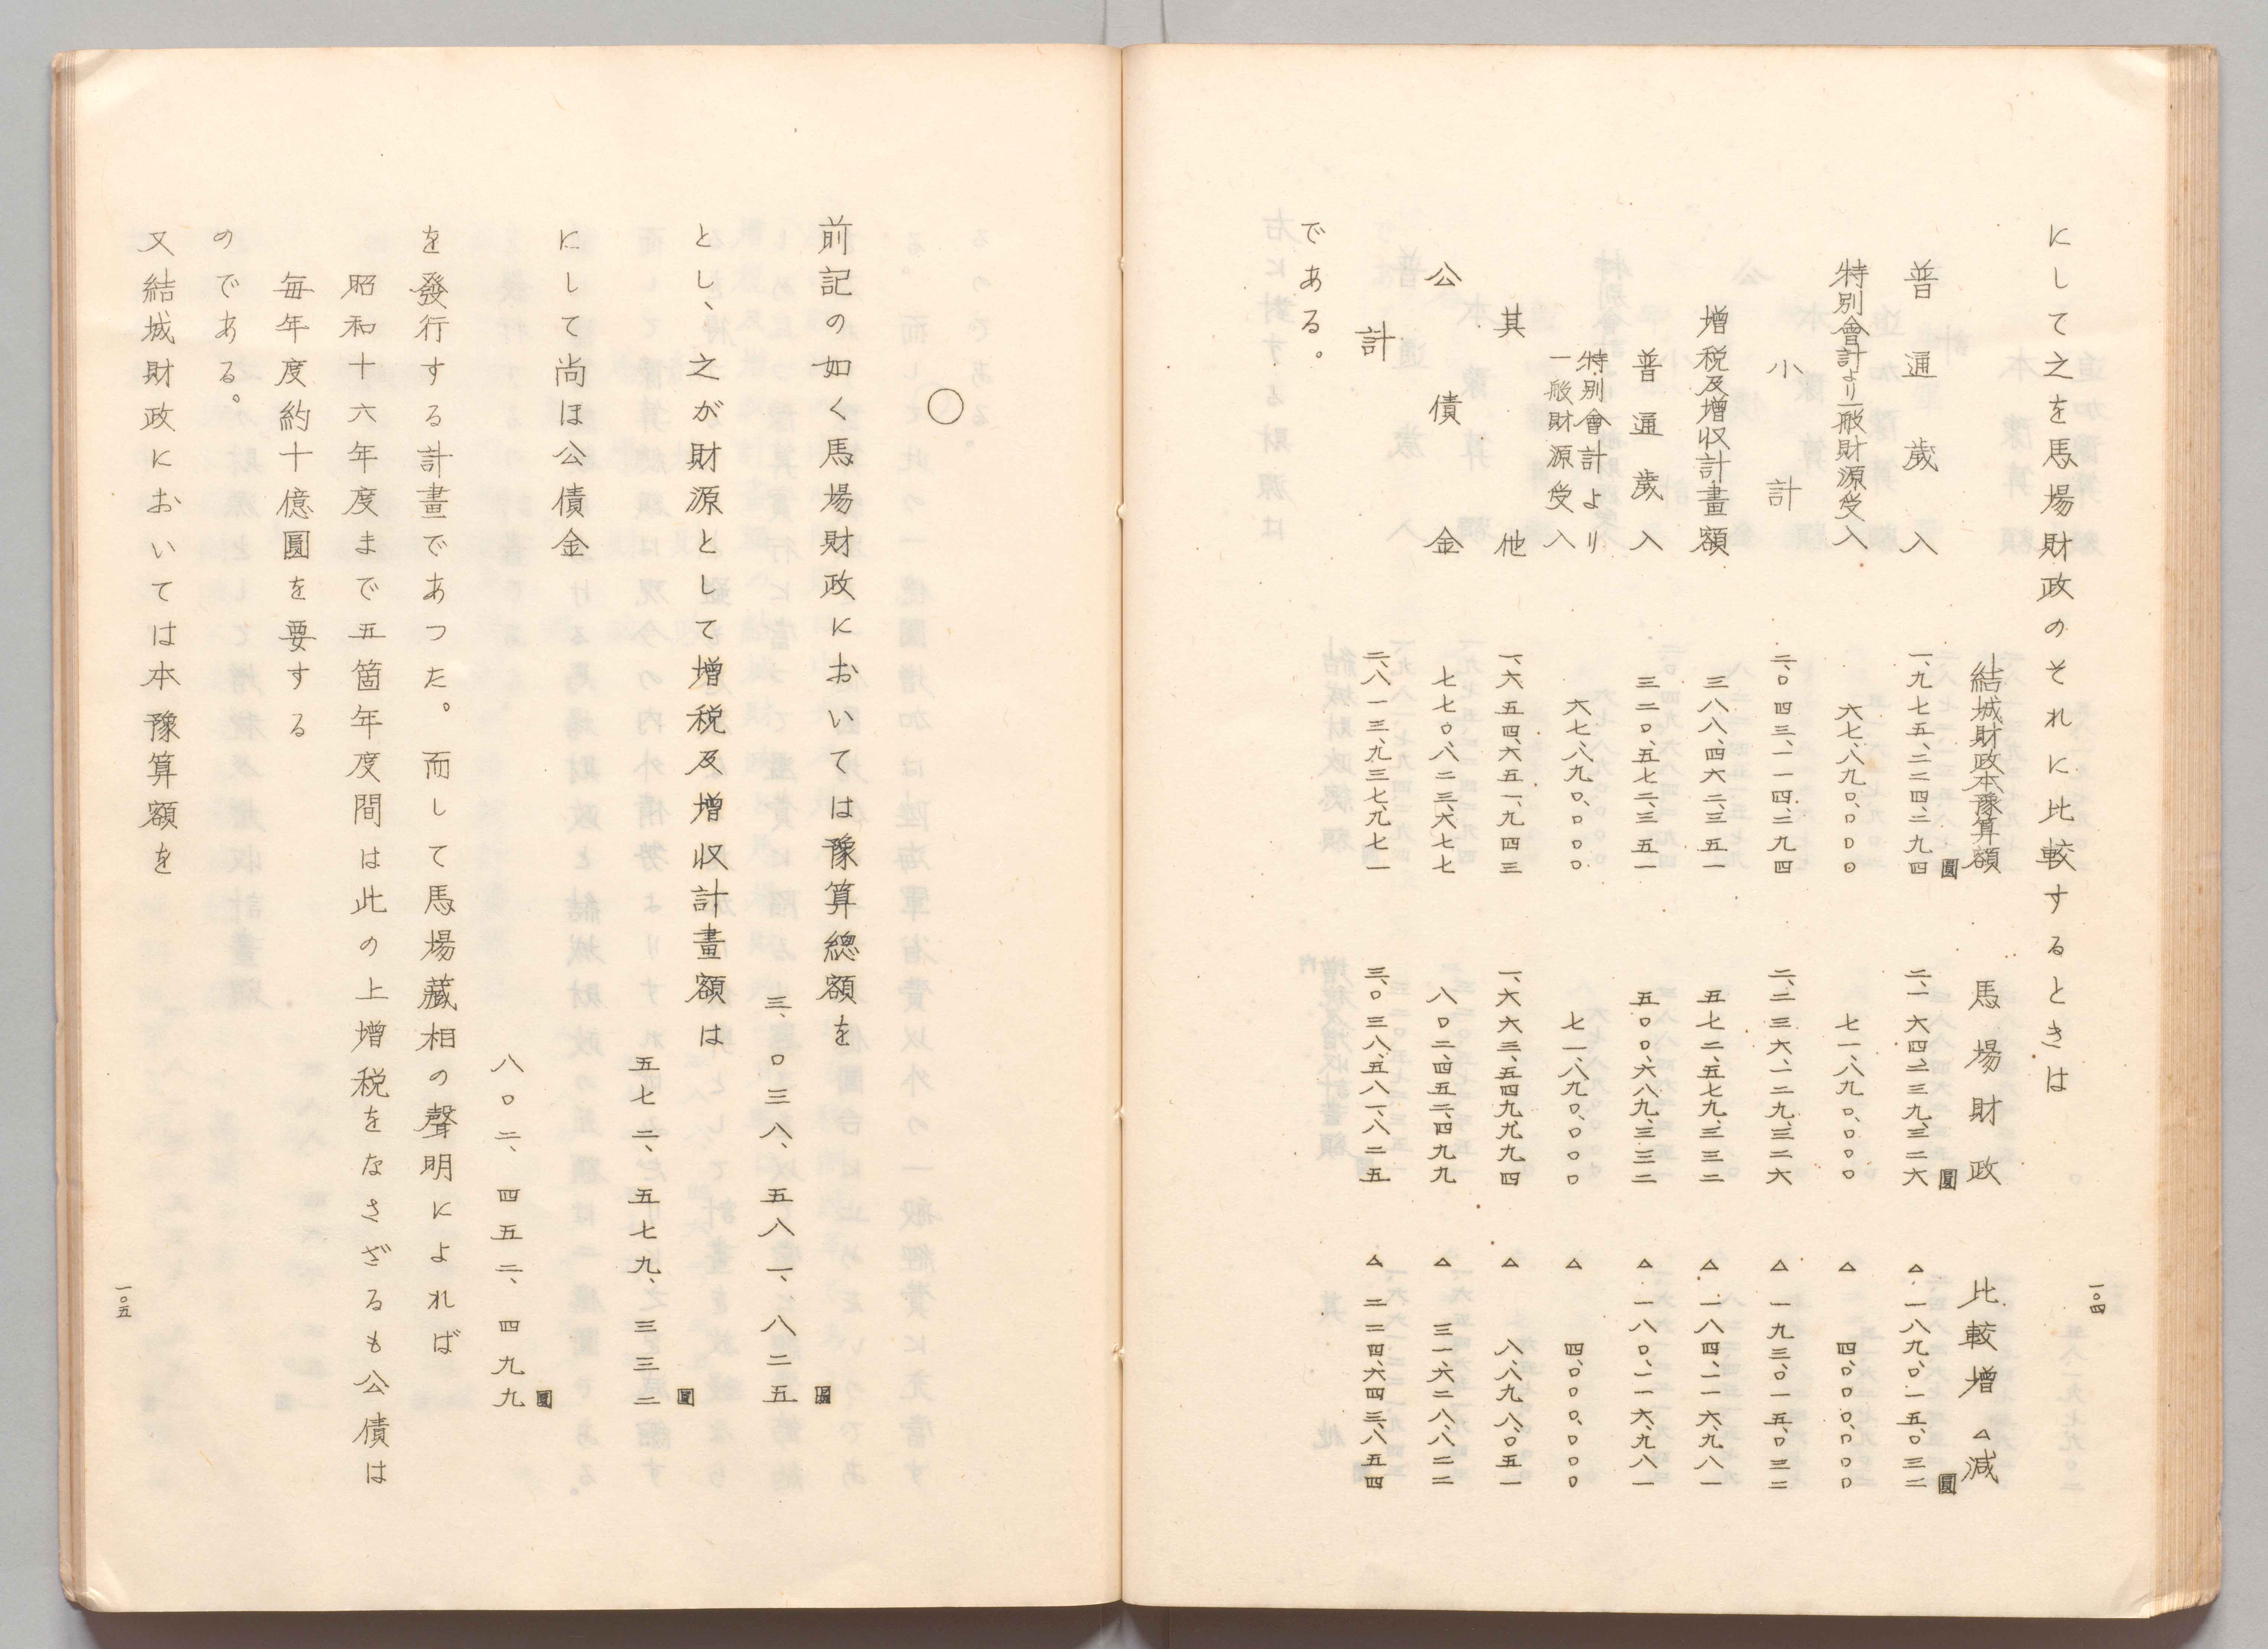 一〇四
にして之を馬場財政のそれに比較するときは
結城財政本豫算額 馬場財政 比較増△減
圓 圓 圓
普通歳入 一、九七五、二二四、二九四 二、一六四、二三九、三二六 △ 一八九、〇一五、〇三二
特別會計より一般財源受入 六七、八九〇、〇〇〇 七一、八九〇、〇〇〇 △ 四、〇〇〇、〇〇〇
小計 二、〇四三、一一四、二九四 二、二三六、一二九、三二六 △ 一九三、〇一五、〇三二
増税及増収計畫額 三八八、四六二、三五一 五七二、五七九、三三二 △ 一八四、一一六、九八一
普通歳入 三二〇、五七二、三五一 五〇〇、六八九、三三二 △ 一八〇、一一六、九八一
特別會計より
一般財源受入 六七、八九〇、〇〇〇 七一、八九〇、〇〇〇 △ 四、〇〇〇、〇〇〇
其他 一、六五四、六五一、九四三 一、六六三、五四九、九九四 △ 八、八九八、〇五一
公債金 七七〇、八二三、六七七 八〇二、四五二、四九九 △ 三一、六二八、八二二
計 二、八一三、九三七、九七一 三、〇三八、五八一、八二五 △ 二二四、六四三、八五四
である。
〇
前記の如く馬場財政においては豫算總額を
圓
三、〇三八、五八一、八二五
とし、之が財源として増税及増収計畫額は
圓
五七二、五七九、三三二
にして尚ほ公債金
圓
八〇二、四五二、四九九
を發行する計畫であつた。而して馬場藏相の聲明によれば
昭和十六年度まで五箇年度間は此の上増税をなさざるも公債は
毎年度約十億圓を要する
のである。
又結城財政においては本豫算額を
一〇五